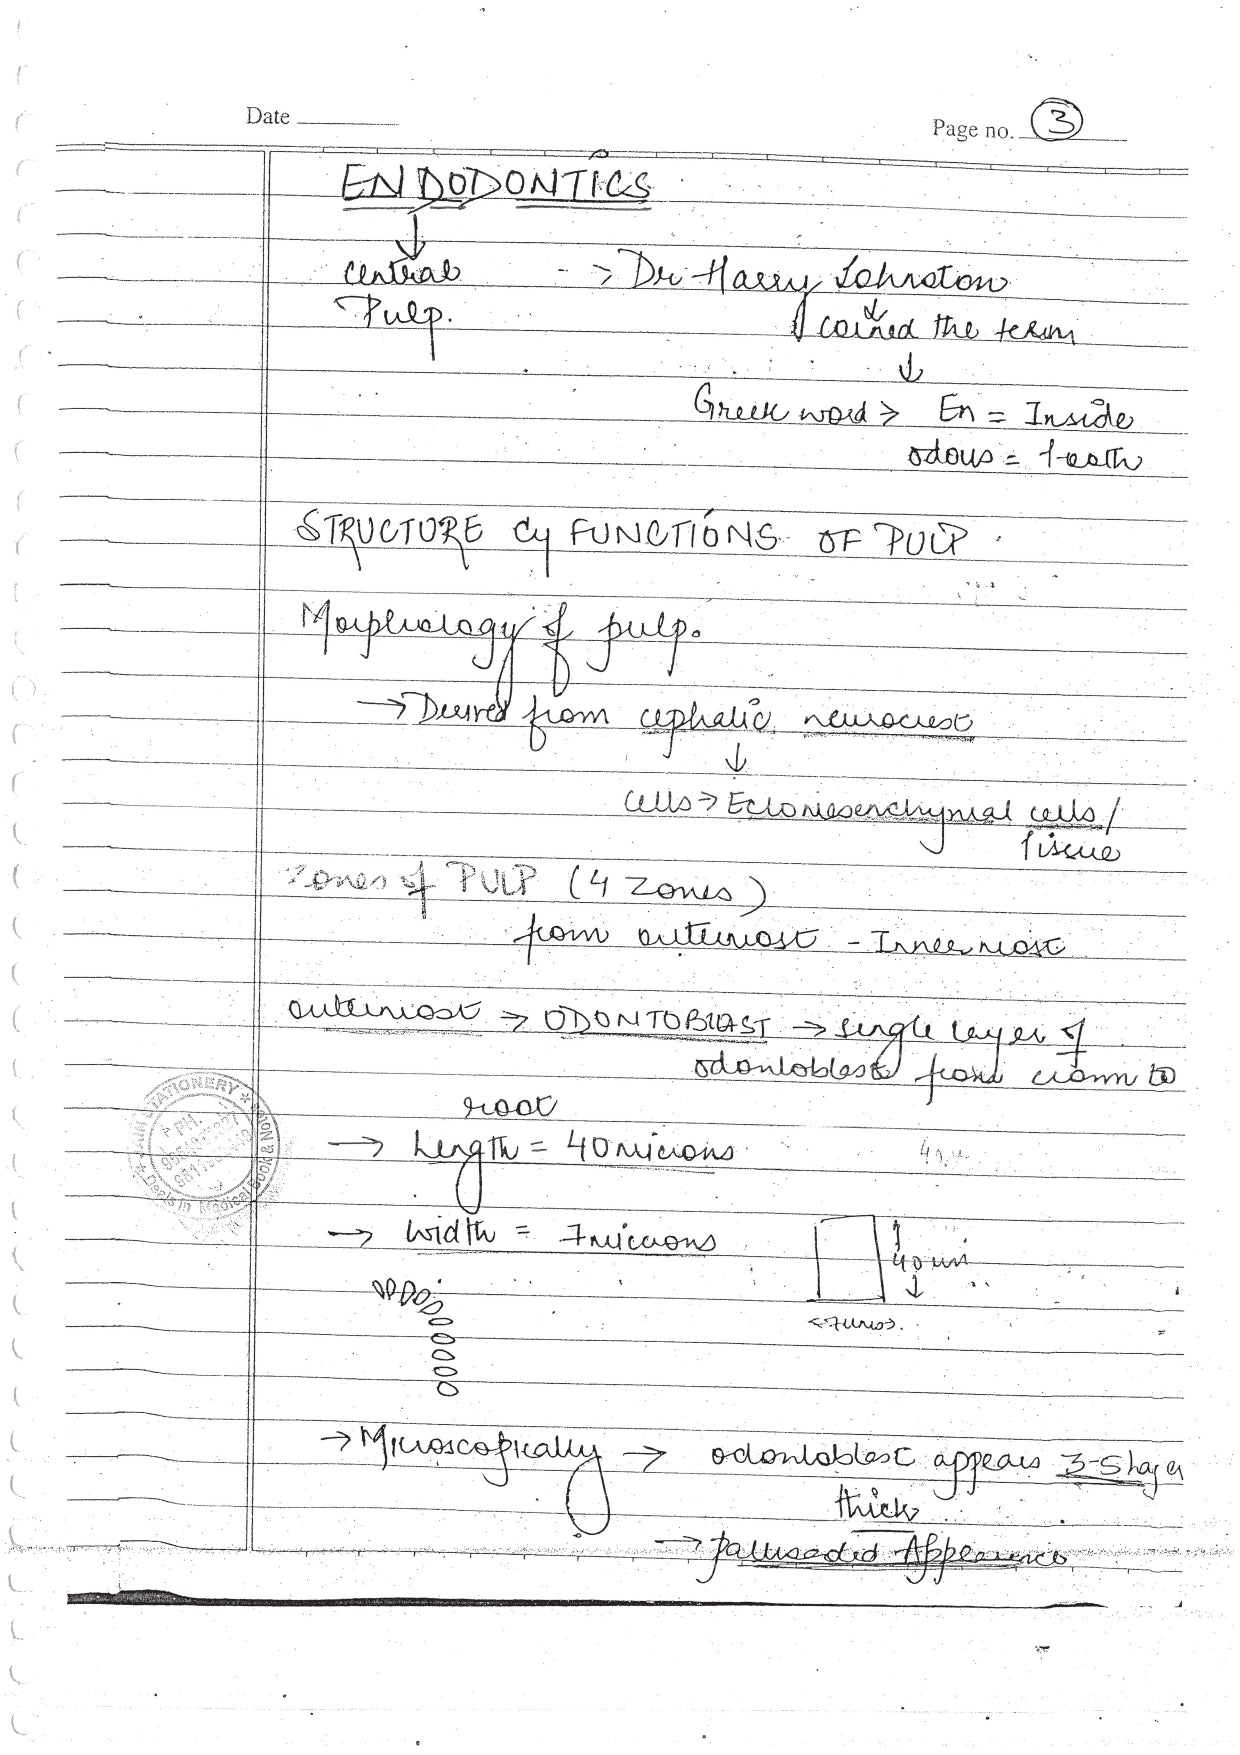 Date
Page no. 3
ENDODONTICS
↓
central
Pulp.
-> Dr Harry Johnston
↓
coined the term
↓
Greek word > En = Inside
odous = teeth
STRUCTURE & FUNCTIONS OF PULP
Morphology of pulp.
→ Derived from cephalic neurocrest
↓
cells → Ectomesenchymal cells/
Tissue
Zones of PULP (4 Zones)
from outermost - Innermost
outermost → ODONTOBLAST → single layer of
odontoblast from crown to
root
→ Length = 40 microns
→ Width = 7 microns
40 um
→ Microscopically → odontoblast appears 3-5 layer
thick
→ pallisaded Appearence
STATIONERY
PH.
Deals in Medical Book &